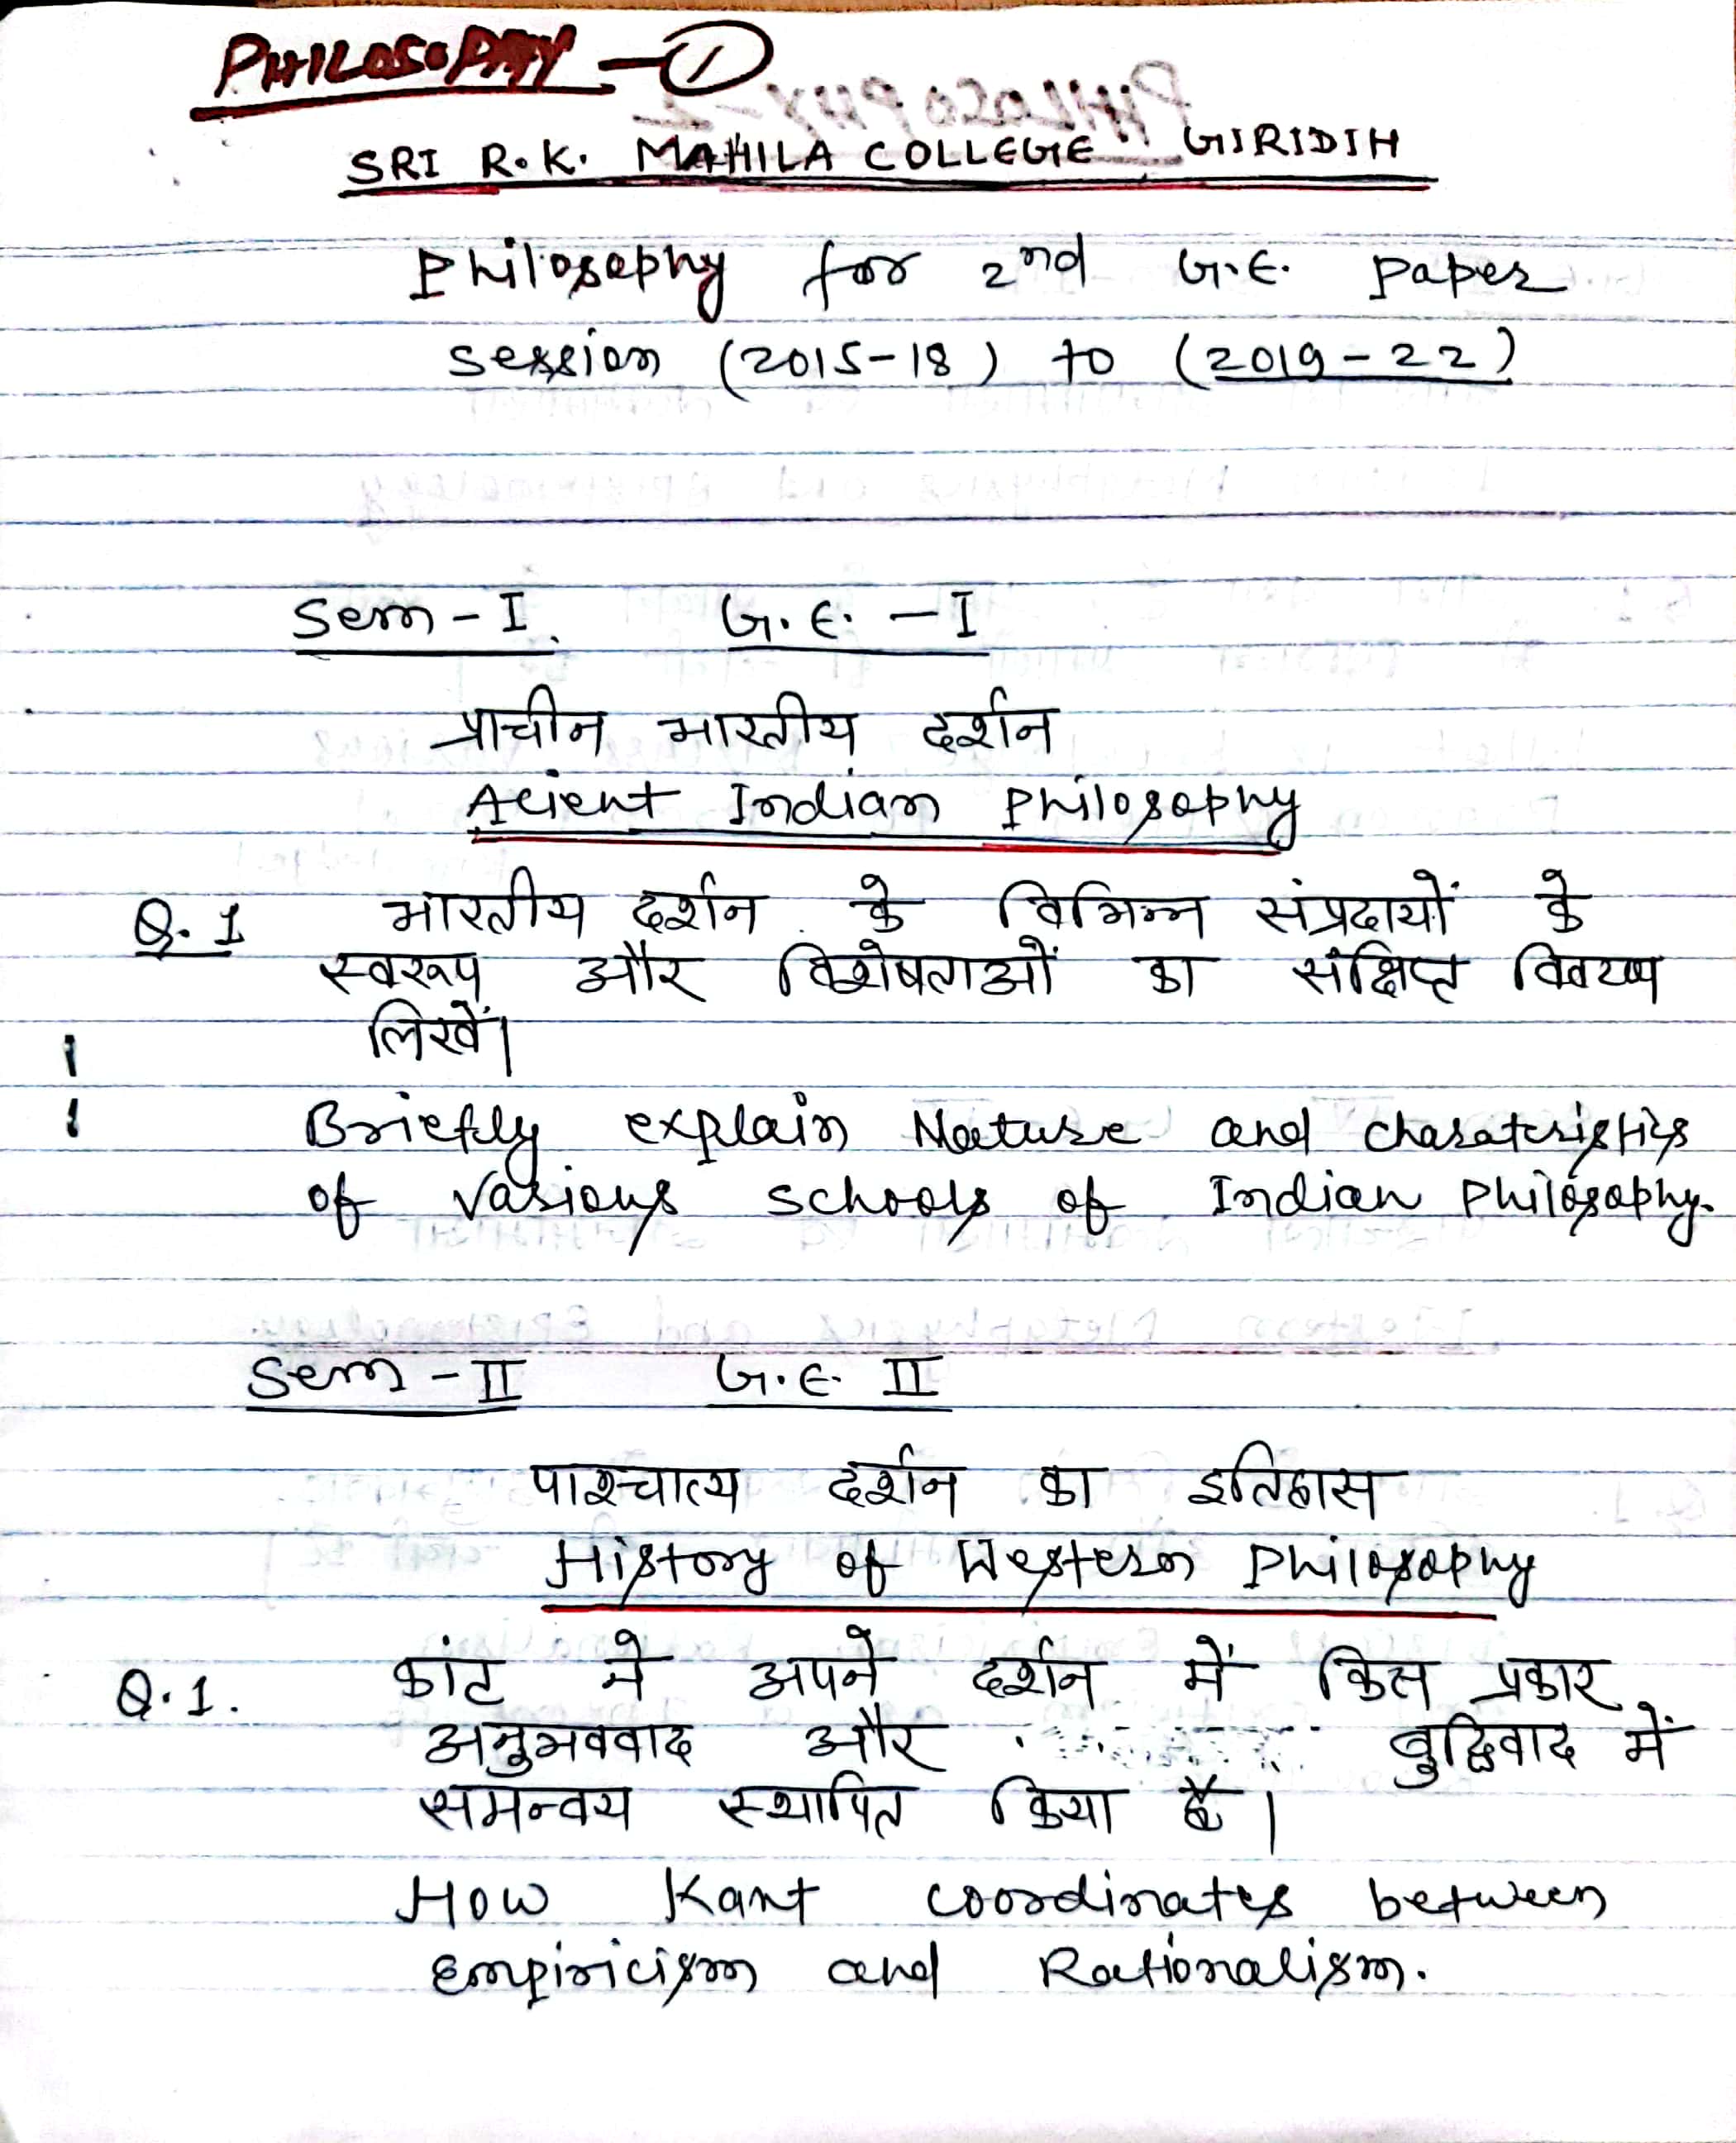 PHILOSOPHY - 1
SRI R.K. MAHILA COLLEGE GIRIDIH
Philosophy for 2nd G.E. Paper
Session (2015-18) to (2019-22)
Sem - I G.E. - I
प्राचीन भारतीय दर्शन
Acient Indian Philosophy
Q. 1 भारतीय दर्शन के विभिन्न संप्रदायों के
स्वरूप और विशेषताओं का संक्षिप्त विवरण
लिखें।
Briefly explain Nature and charateristics
of Various schools of Indian Philosophy.
Sem - II G.E. II
पाश्चात्य दर्शन का इतिहास
History of Western Philosophy
Q.1. कांट ने अपने दर्शन में किस प्रकार
अनुभववाद और बुद्धिवाद में
समन्वय स्थापित किया है।
How Kant coordinates between
Empiricism and Rationalism.